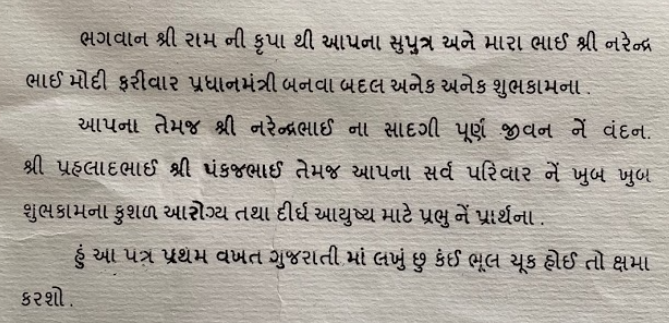 ભગવાન શ્રી રામ ની કૃપા થી આપના સુપુત્ર અને મારા ભાઈ શ્રી નરેન્દ્ર
ભાઈ મોદી ફરીવાર પ્રધાનમંત્રી બનવા બદલ અનેક અનેક શુભકામના.
આપના તેમજ શ્રી નરેન્દ્રભાઈ ના સાદગી પૂર્ણ જીવન નેં વંદન.
શ્રી પ્રહલાદભાઈ શ્રી પંકજભાઈ તેમજ આપના સર્વ પરિવાર નેં ખુબ ખુબ
શુભકામના કુશળ આરોગ્ય તથા દીર્ઘ આયુષ્ય માટે પ્રભુ નેં પ્રાર્થના.
હું આ પત્ર પ્રથમ વખત ગુજરાતી માં લખું છુ કંઈ ભૂલ ચૂક હોઈ તો ક્ષમા
કરશો.